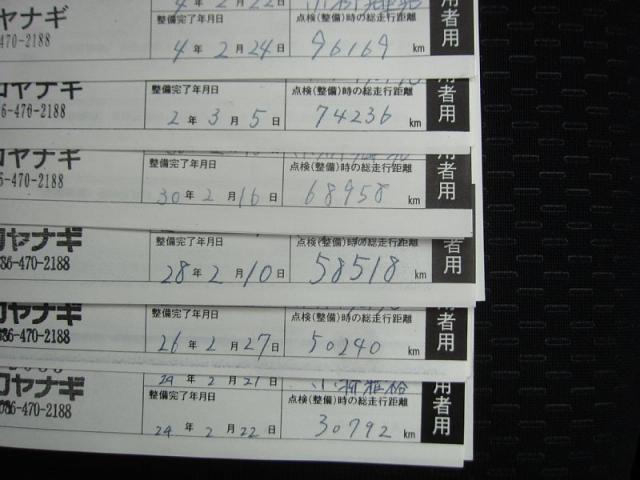 4 年 2 月 22 日
ヤナギ
点検(整備)時の総走行距離
用者用
-470-2188
4 年 2 月 24 日
96169 km
コヤナギ
整備完了年月日
点検(整備)時の総走行距離
者用
6-470-2188
2 年 3 月 5 日
74236 km
コヤナギ
整備完了年月日
点検(整備)時の総走行距離
用者用
6-470-2188
30 年 2 月 16 日
68958 km
コヤナギ
整備完了年月日
点検(整備)時の総走行距離
者用
86-470-2188
28 年 2 月 10 日
58518 km
コヤナギ
整備完了年月日
点検(整備)時の総走行距離
用者用
086-470-2188
26 年 2 月 27 日
50240 km
24 年 2 月 21 日
コヤナギ
整備完了年月日
点検(整備)時の総走行距離
用者用
086-470-2188
24 年 2 月 22 日
30792 km